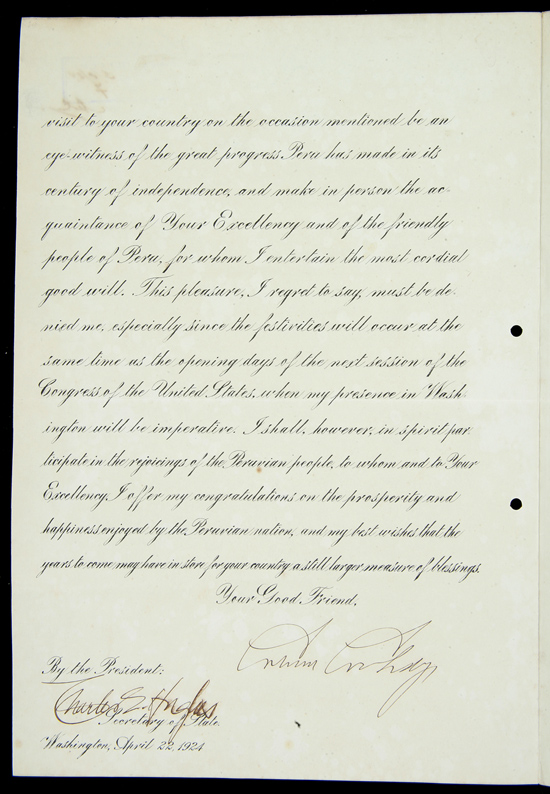 visit to your country on the occasion mentioned be an
eye-witness of the great progress Peru has made in its
century of independence, and make in person the ac-
quaintance of Your Excellency and of the friendly
people of Peru, for whom I entertain the most cordial
good will. This pleasure, I regret to say, must be de-
nied me, especially since the festivities will occur at the
same time as the opening days of the next session of the
Congress of the United States, when my presence in Wash-
ington will be imperative. I shall, however, in spirit par-
ticipate in the rejoicings of the Peruvian people, to whom and to Your
Excellency, I offer my congratulations on the prosperity and
happiness enjoyed by the Peruvian nation, and my best wishes that the
years to come may have in store for your country a still larger measure of blessings.
Your Good Friend,
Calvin Coolidge
By the President:
Charles E. Hughes
Secretary of State.
Washington, April 22, 1924